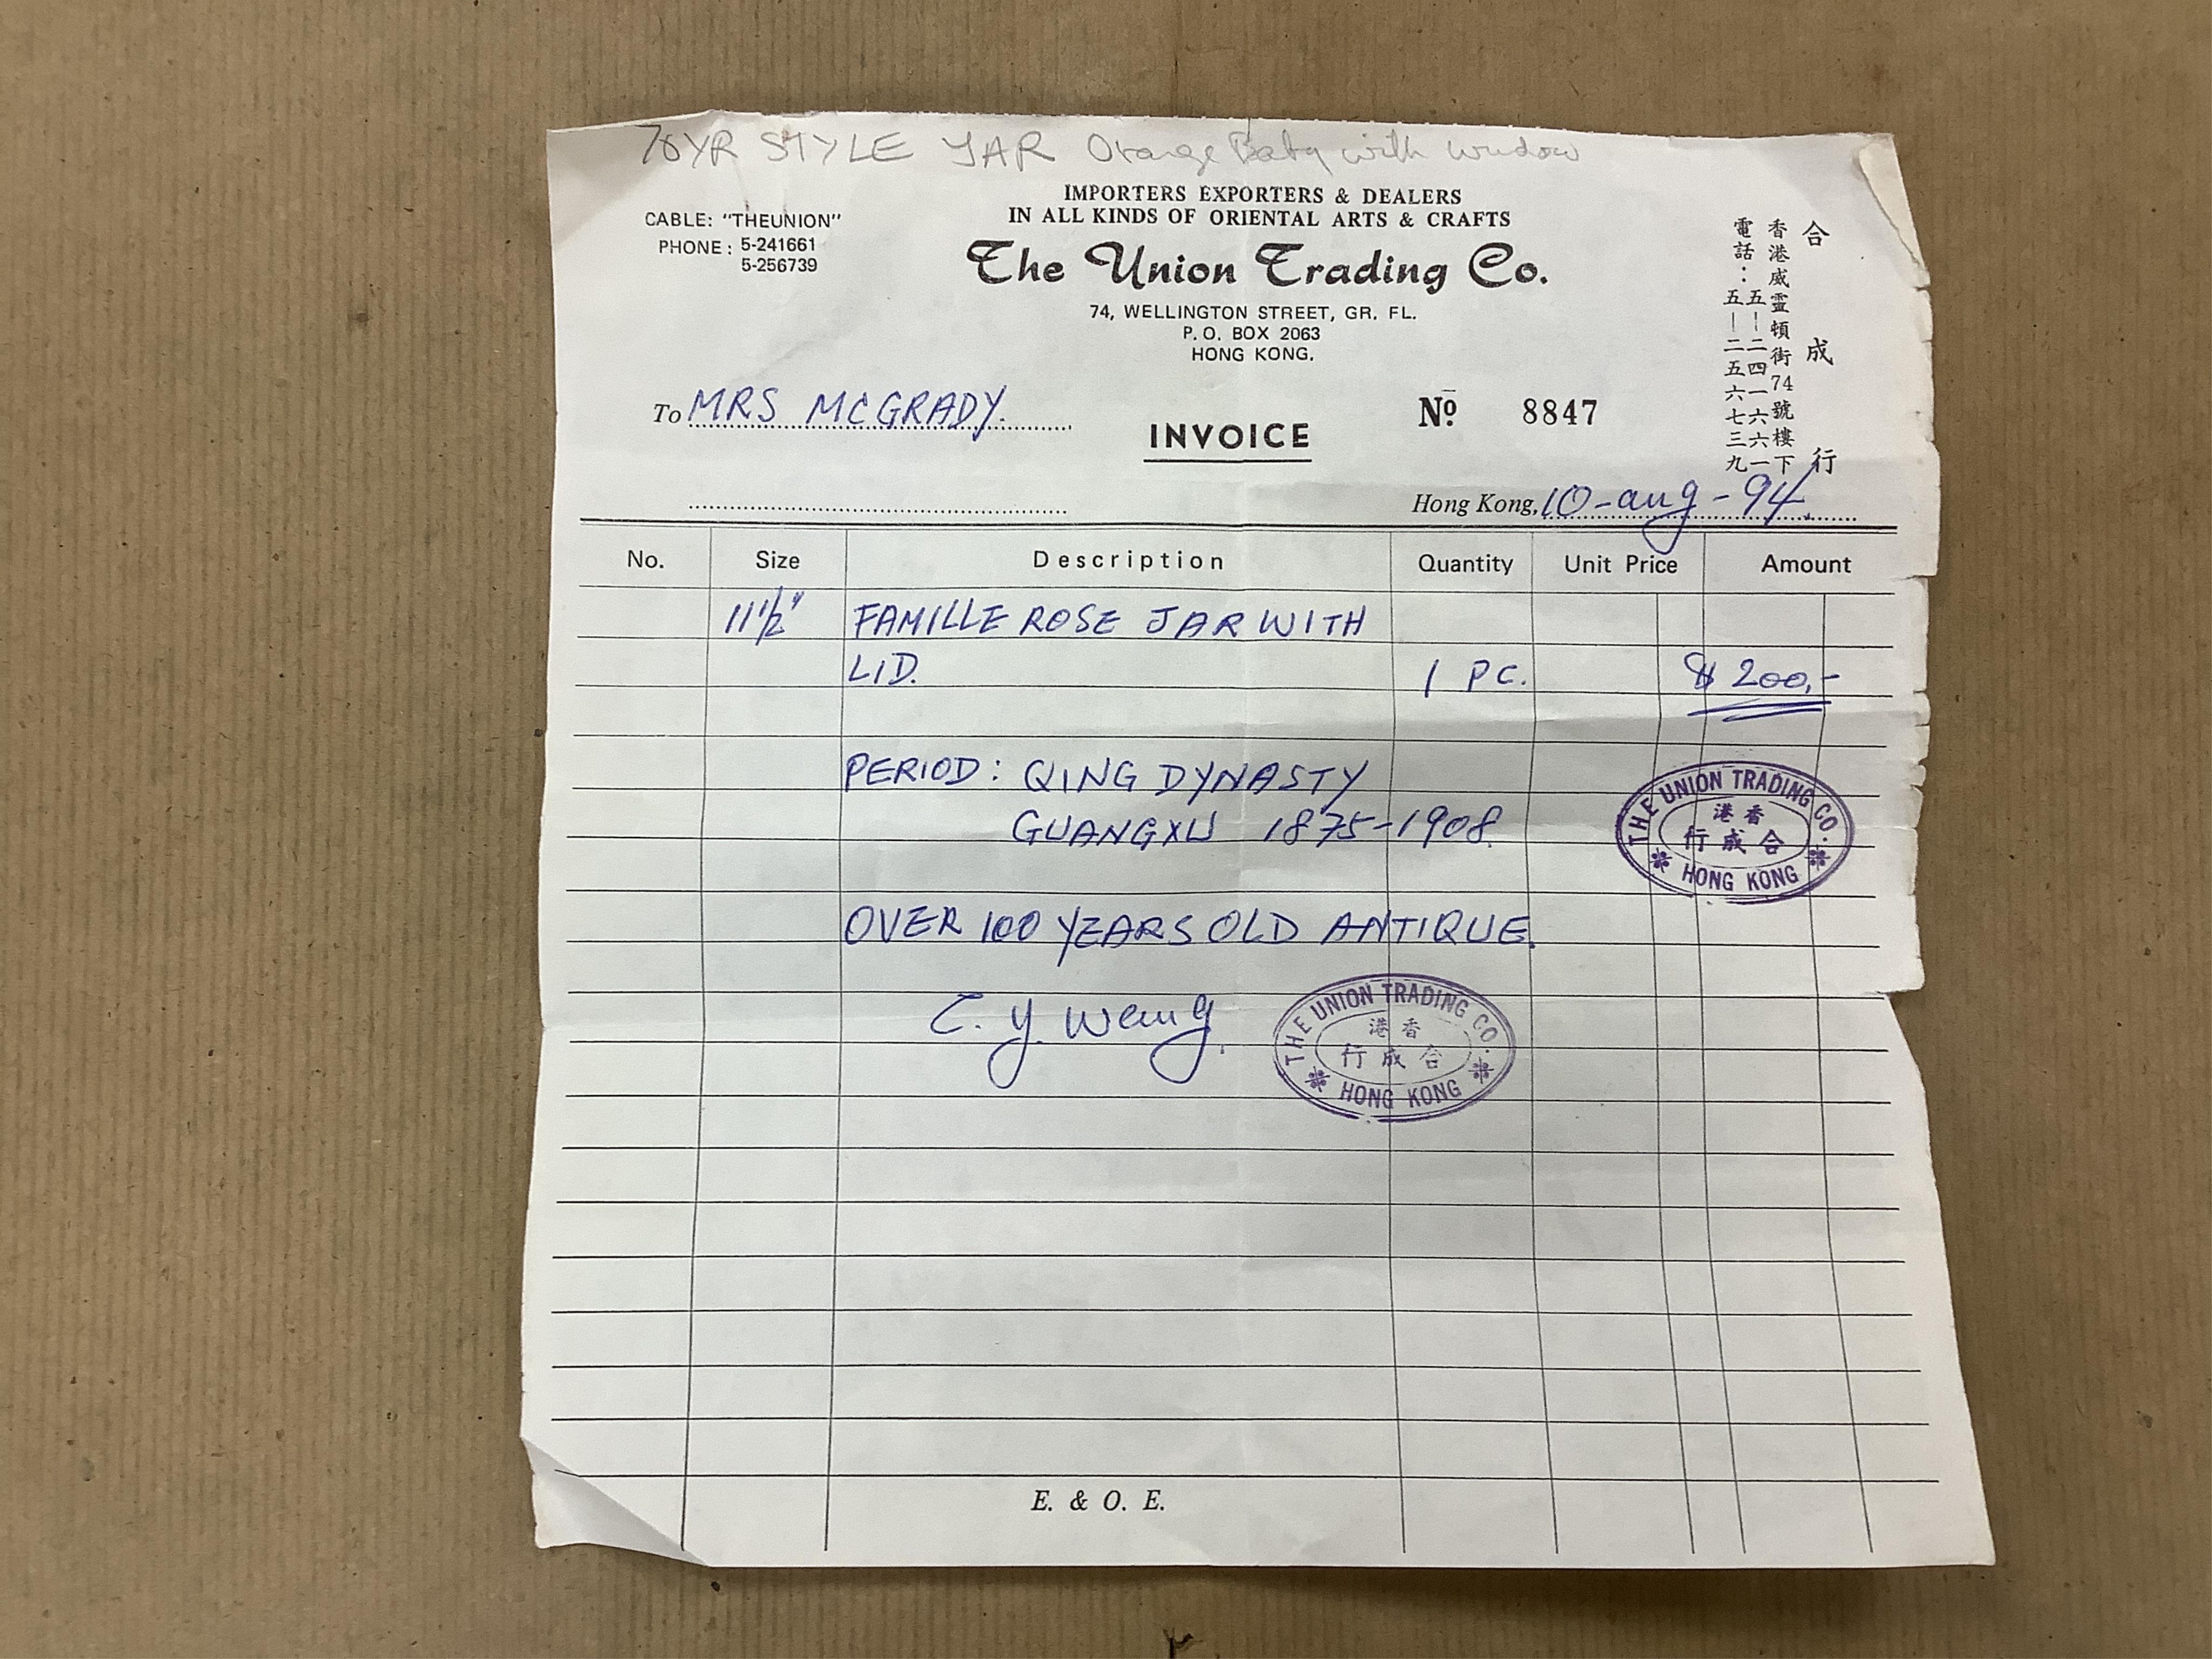 70YR STYLE JAR Orange Baby with window
IMPORTERS EXPORTERS & DEALERS
IN ALL KINDS OF ORIENTAL ARTS & CRAFTS
CABLE: "THEUNION"
PHONE: 5-241661
5-256739
The Union Trading Co.
74, WELLINGTON STREET, GR. FL.
P. O. BOX 2063
HONG KONG.
合成行
香港威靈頓街74號樓下
電話：五－二四一六六一
五－二五六七三九
To MRS MCGRADY.
INVOICE
Nº 8847
Hong Kong, 10-aug-94.
No. Size Description Quantity Unit Price Amount
11½" FAMILLE ROSE JAR WITH
LID. 1 PC. $200.-
PERIOD: QING DYNASTY
GUANGXU 1875-1908.
THE UNION TRADING CO.
港香
行成合
HONG KONG
OVER 100 YEARS OLD ANTIQUE.
THE UNION TRADING CO.
港香
行成合
HONG KONG
E. & O. E.